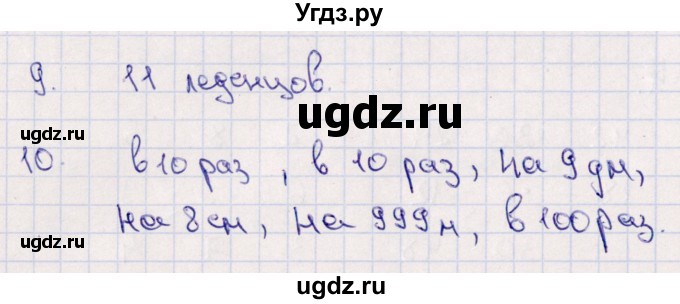 Угдз.ру
9. 11 леденцов.
ugdz.ru
ugdz.ru
ugdz.ru
10. в 10 раз, в 10 раз, на 9 дм,
на 8 см, на 999 м, в 100 раз.
ugdz.ru
ugdz.ru
ugdz.ru